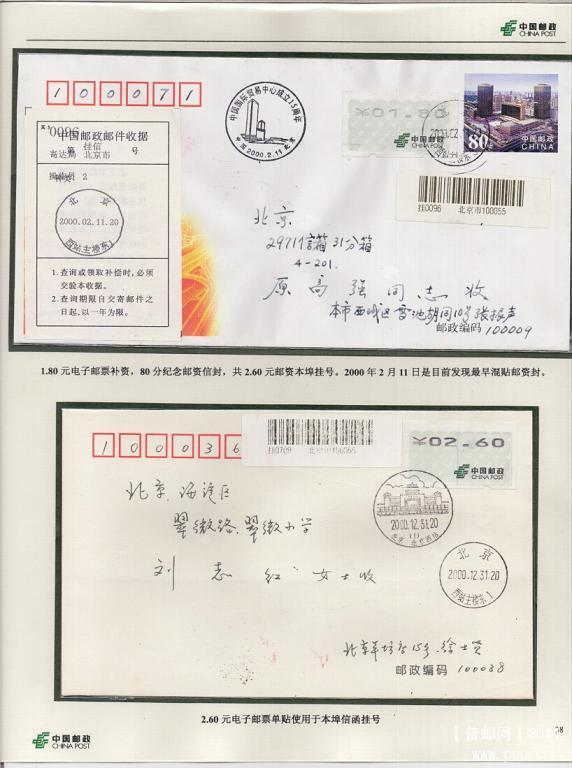 中国邮政
CHINA POST
100071
中国国际贸易中心成立15周年
中国 2000.2.11 北京
¥01.80
中国邮政
CHINA POST
80分
中国邮政
CHINA
0096
中国邮政邮件收据
第 挂信 号
寄达局 北京市
接收员 2
北京
2000.02.11.20
西站主楼东1
1.查询或领取补偿时,必须
交验本收据。
2.查询期限自交寄邮件之
日起,以一年为限。
挂0096 北京市100055
北京
2971信箱31分箱
4-201.
原高强同志收
本市西城区雪池胡同10号张振声
邮政编码 100009
1.80 元电子邮票补资,80 分纪念邮资信封,共 2.60 元邮资本埠挂号。2000 年 2 月 11 日是目前发现最早混贴邮资封。
100036
挂0709 北京市100055
¥02.60
中国邮政
CHINA POST
北京 海淀区
翠微路 翠微小学
刘志红 女士收
2000.12.31.20
(1)
北京
2000.12.31.20
西站主楼东1
邮政编码 100038
2.60 元电子邮票单贴使用于本埠信函挂号
中国邮政
CHINA POST
38
【普邮网】
www.puu.cn